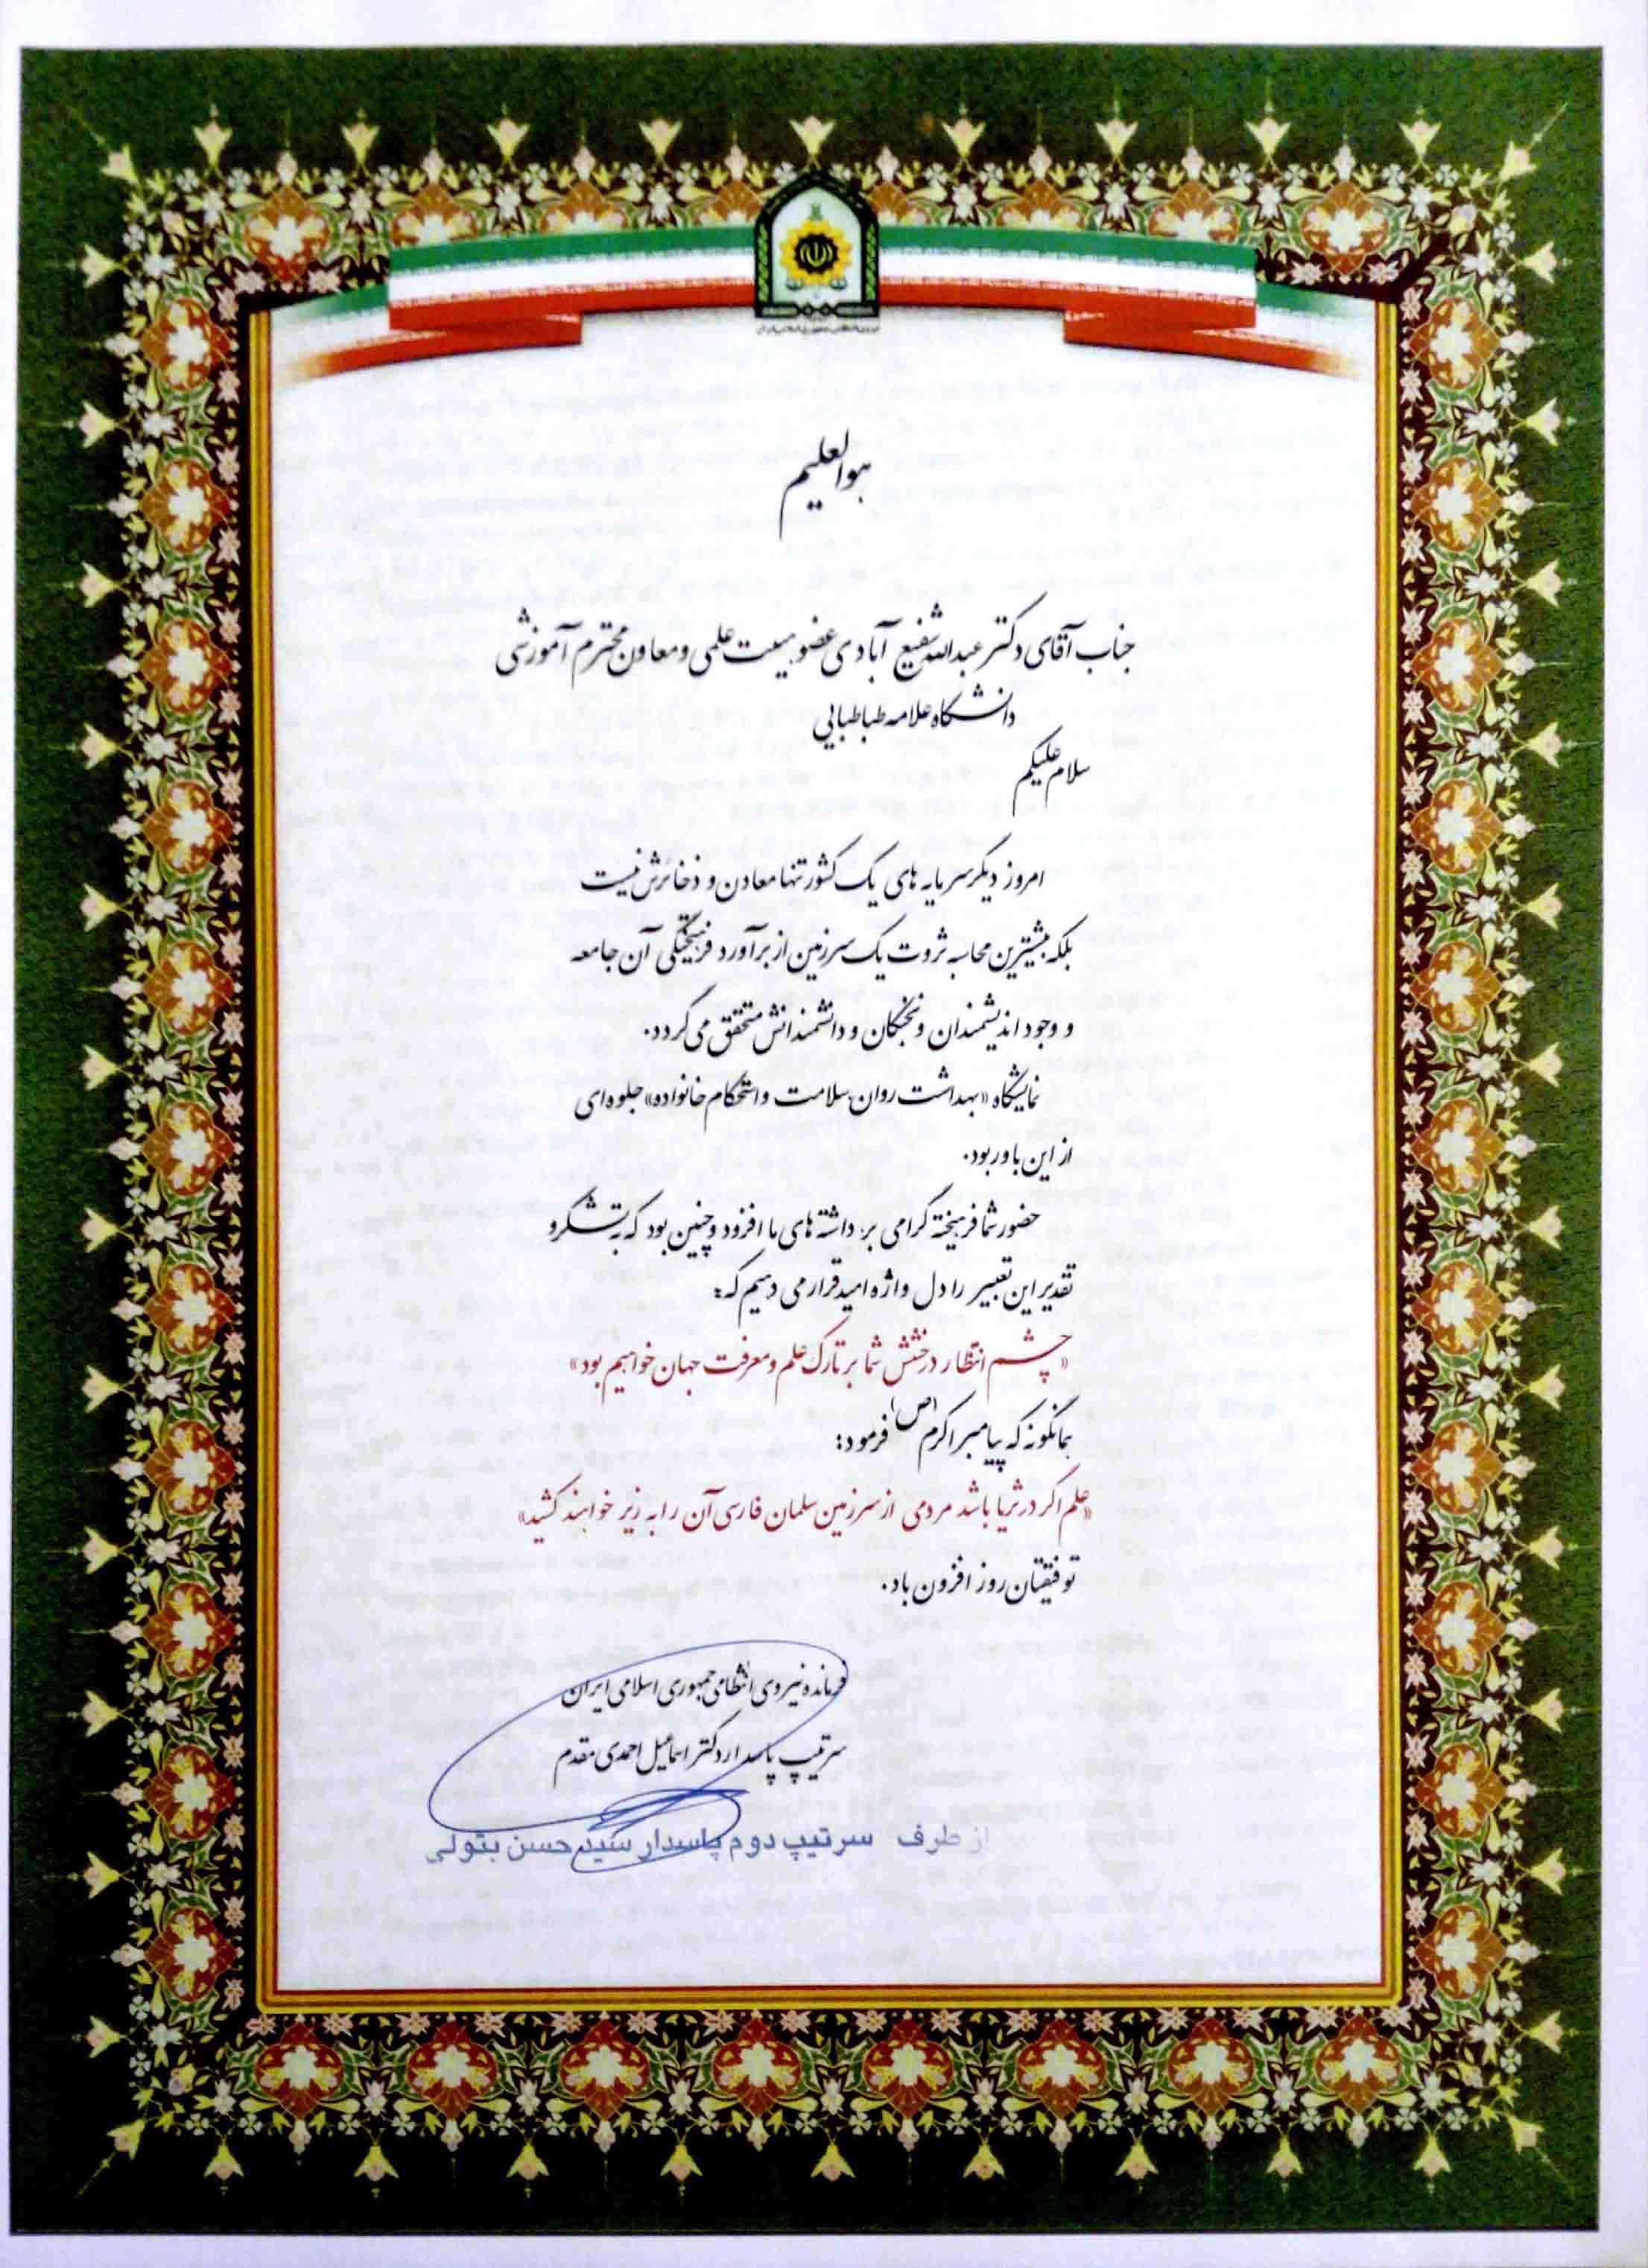 نیروی انتظامی جمهوری اسلامی ایران
هوالعلیم
جناب آقای دکتر عبدالله شفیع آبادی عضو هیئت علمی و معاون محترم آموزشی
دانشگاه علامه طباطبایی
سلام علیکم
امروز دیگر سرمایه های یک کشور تنها معادن و ذخائرش نیست
بلکه بیشترین محاسبه ثروت یک سرزمین از برآورد فرهیختگی آن جامعه
و وجود اندیشمندان و نخبگان و دانشمندانش متحقق می گردد.
نمایشگاه «بهداشت روان، سلامت و استحکام خانواده» جلوه ای
از این باور بود.
حضور شما فرهیخته گرامی بر داشته های ما افزود و چنین بود که به تشکر و
تقدیر این تعبیر را دل واژه امید قرار می دهیم که:
«چشم انتظار درخشش شما بر تارک علم و معرفت جهان خواهیم بود»
همانگونه که پیامبر اکرم (ص) فرمود:
«علم اگر در ثریا باشد مردمی از سرزمین سلمان فارسی آن را به زیر خواهند کشید»
توفیقتان روز افزون باد.
فرمانده نیروی انتظامی جمهوری اسلامی ایران
سرتیپ پاسدار دکتر اسماعیل احمدی مقدم
از طرف سرتیپ دوم پاسدار سید حسن بتولی